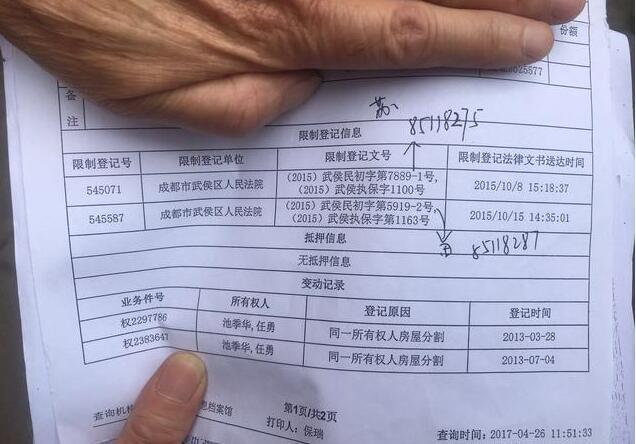 份额
备
注
85118275
限制登记信息
限制登记号 限制登记单位 限制登记文号 限制登记法律文书送达时间
545071 成都市武侯区人民法院 (2015)武侯民初字第7889-1号,
(2015)武侯执保字1100号 2015/10/8 15:18:37
545587 成都市武侯区人民法院 (2015)武侯民初字第5919-2号,
(2015)武侯执保字第1163号 2015/10/15 14:35:01
抵押信息
85118287
无抵押信息
变动记录
业务件号 所有权人 登记原因 登记时间
权2297786 池季华,任勇 同一所有权人房屋分割 2013-03-28
权2383647 池季华,任勇 同一所有权人房屋分割 2013-07-04
查询机 息档案馆 第1页/共2页
打印人：保瑞
查询时间:2017-04-26 11:51:33